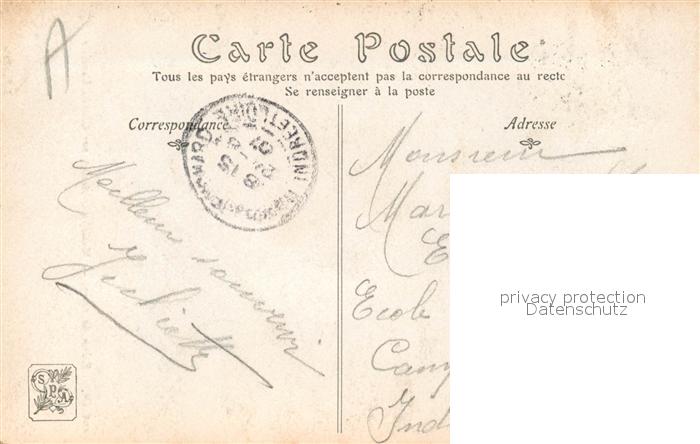 A
Carte Postale
Tous les pays étrangers n'acceptent pas la correspondance au recto
Se renseigner à la poste
Correspondance
Adresse
INDRE ET LOIRE
8 15
Meilleur souvenir
Juliette
Monsieur
Mar
E
Ecole
Camp
Ind
privacy protection
Datenschutz
SPA